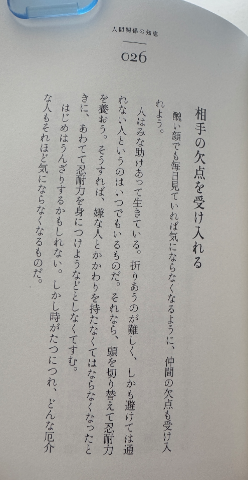 人間関係の知恵
026
相手の欠点を受け入れる
醜い顔でも毎日見ていれば気にならなくなるように、仲間の欠点も受け入
れよう。
人はみな助けあって生きている。折りあうのが難しく、しかも避けては通
れない人というのはいつでもいるものだ。それなら、頭を切り替えて忍耐力
を養おう。そうすれば、嫌な人とかかわりを持たなくてはならなくなったと
きに、あわてて忍耐力を身につけようなどとしなくてすむ。
はじめはうんざりするかもしれない。しかし時がたつにつれ、どんな厄介
な人もそれほど気にならなくなるものだ。